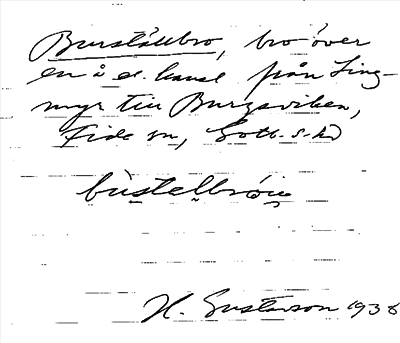 Burställbro, bro över
en å el. kanal från Ling-
myr till Burgsviken,
Fide sn, Gotl. s. hd
bùstellbrǿi̯
H. Gustavson 1938